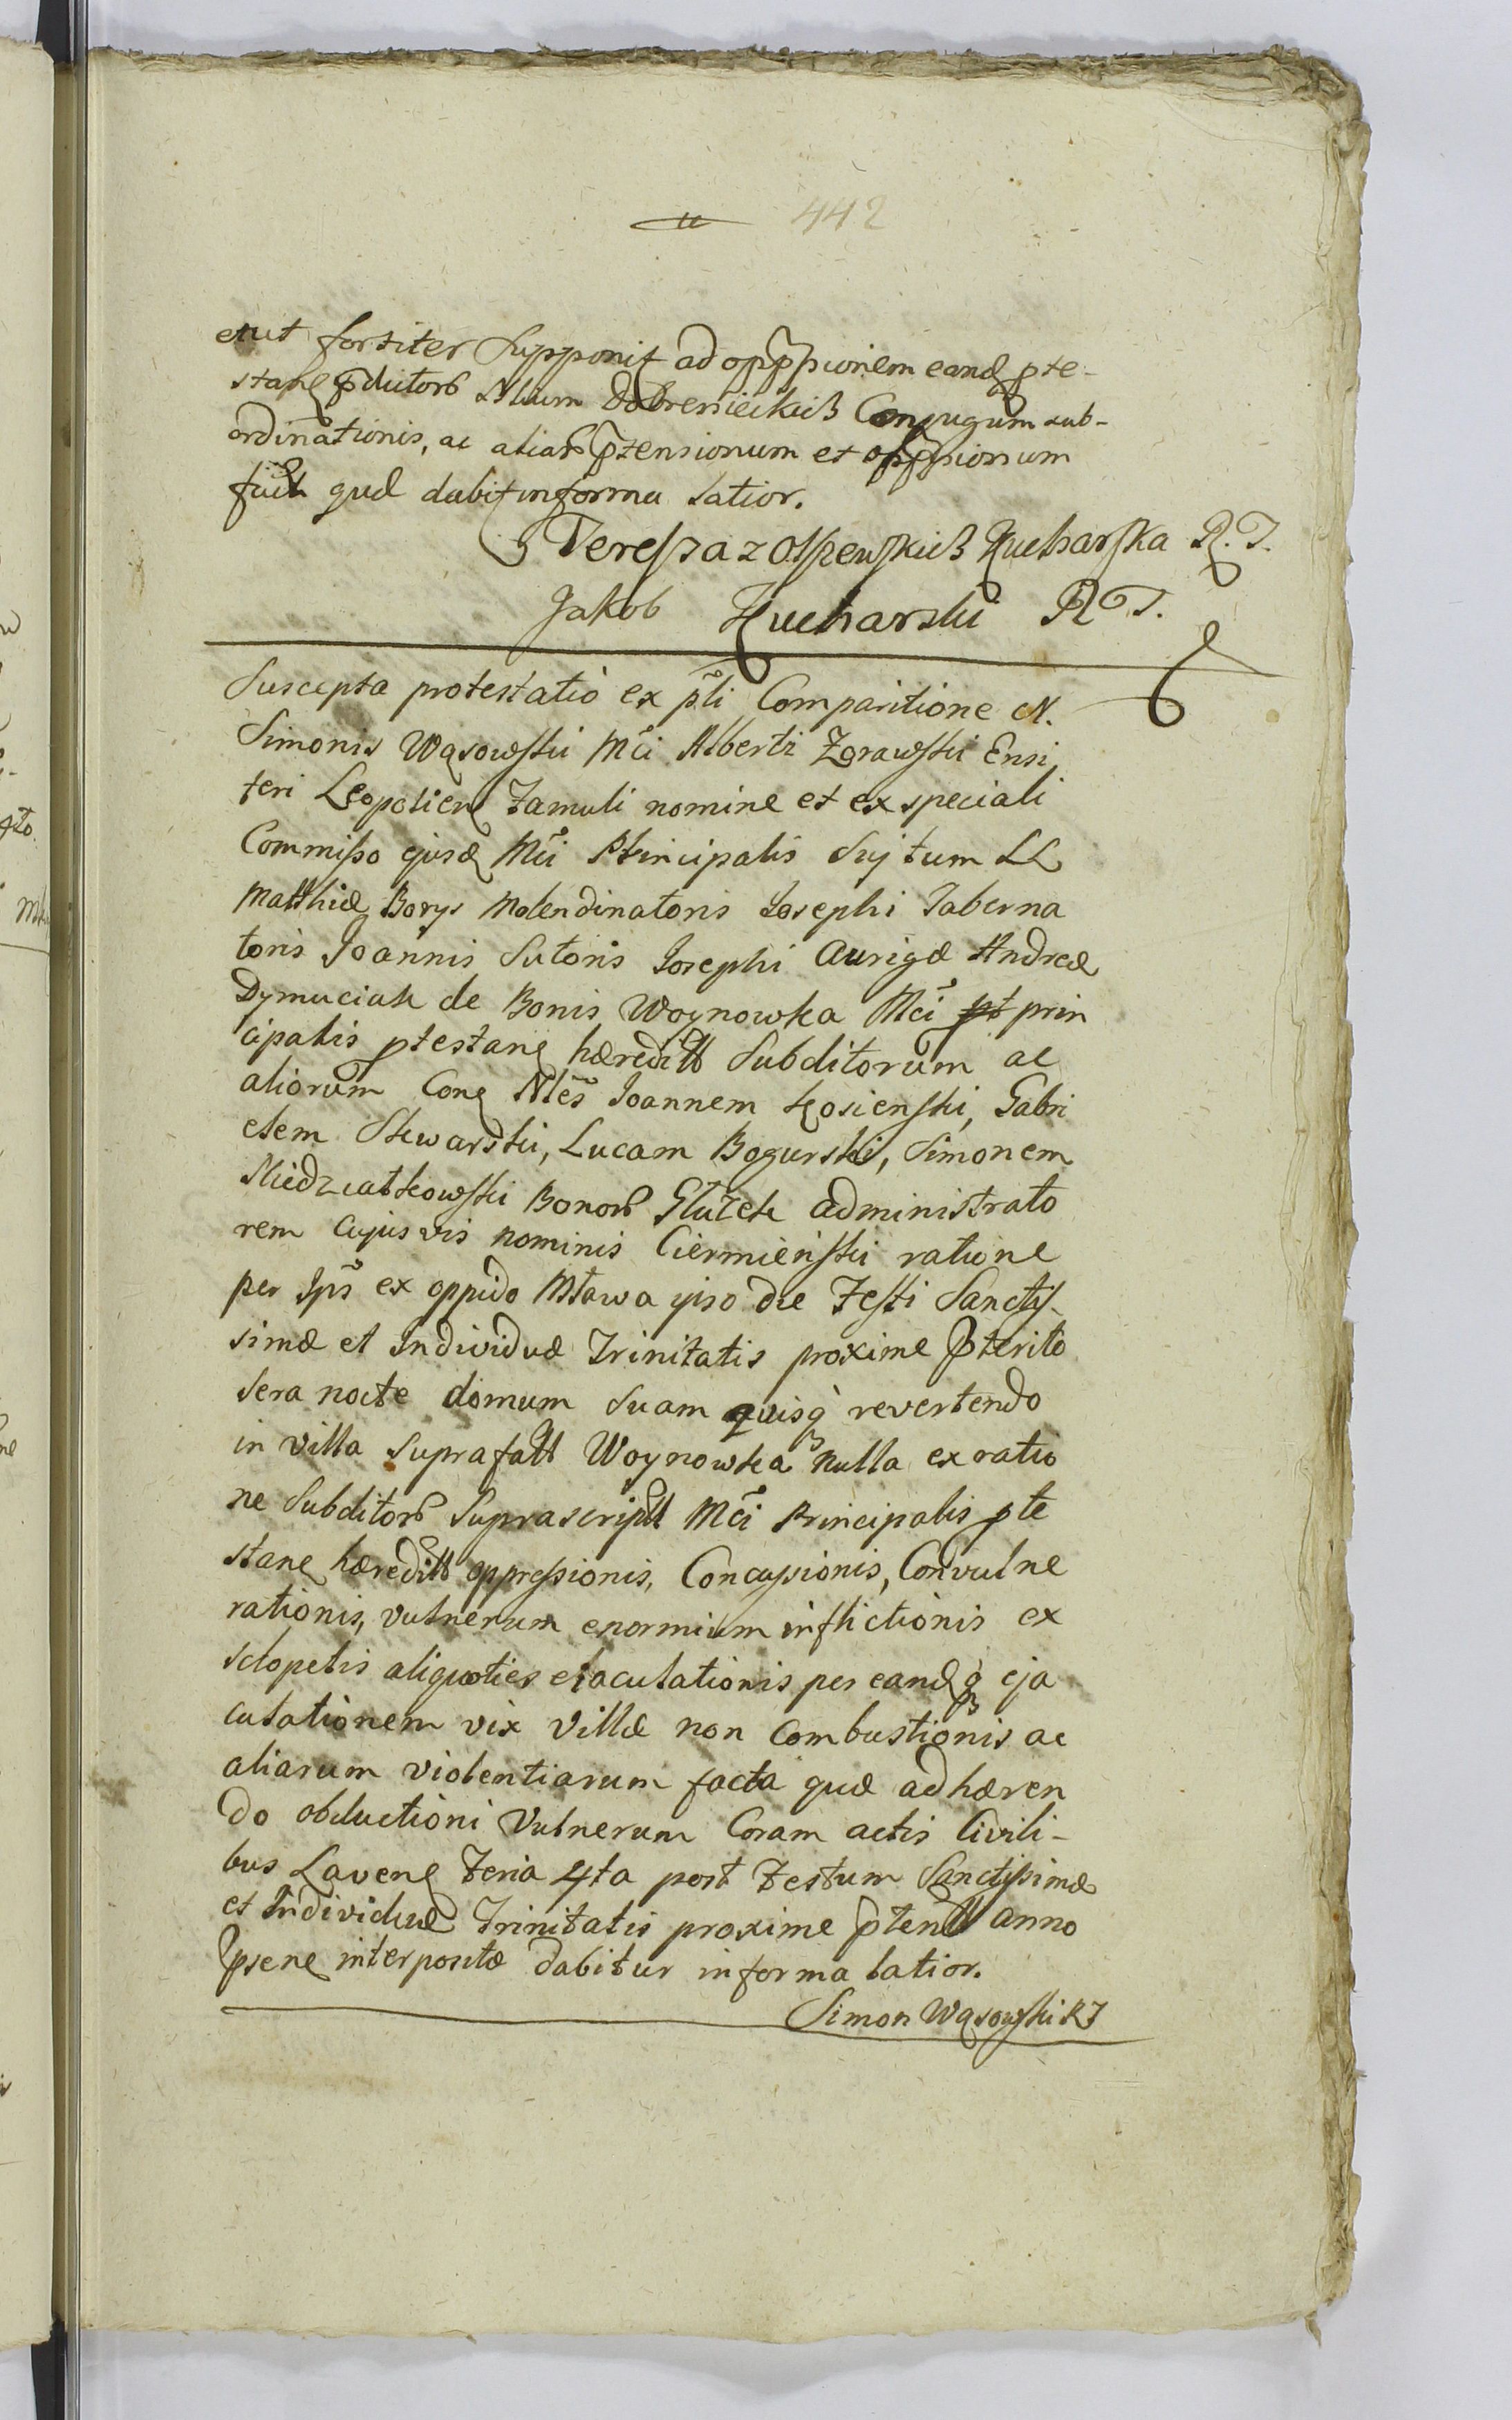 442
et ut fortiter supponit ad oppressionem eand pte-
stane pductorb Nlium Dobrenieckich Conjugum sub-
ordinationis, ac aliarb ptensionum et oppssionum
fact qud dabit in forma latior.
Teressa z Olszewskich Kucharska R. T.
Jakob Kucharski R T.
Suscepta protestatio ex pli Comparitione N.
Simonis Wąsowski Mci Alberti Zgrawski Ensi
feri Leopolien Famuli nomine et ex speciali
Commisso ejusd Mci Principalis Sui tum LL
Matthiæ Borys Molendinatoris Josephi Taberna
toris Joannis Sutoris Josephi Aurigæ Andreæ
Dymuciak de Bonis Woynowka Mci prin
cipalis ptestane hæreditt Subditorum ac
aliorum Cone Nles Joannem Kosienski, Gabri
elem Skwarski, Lucam Bogurski, Simonem
Miedzcatkowski Bonorb Gluzek administrato
rem Cujusvis nominis Ciermienski ratione
per Ips ex oppido Mława ipso die Festi Sanctis-
simæ et Individuæ Trinitatis proxime pterito
sera nocte domum suam quisq revertendo
in villa suprafatt Woynowka nulla ex ratio
ne Subditorb Suprascriptt Mci Principalis pte
stane hæreditt oppressionis, Concussionis, Convulne
rationis, vulnerum enormium inflictionis ex
sclopetis aliquoties ejaculationis per eandq eja
culationem vix Villæ non Combustionis ac
aliarum violentiarum facta quæ adhæren
do obductioni Vulnerum Coram actis Civili-
bus Lavene Feria 4ta post Festum Sanctissimæ
et Individuæ Trinitatis proxime pteritt anno
psene interpositæ dabitur in forma latior.
Simon Wąsowski RT